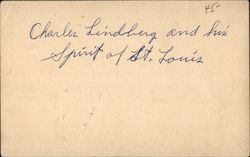 45-
Charles Lindberg and his
Spirit of St. Louis